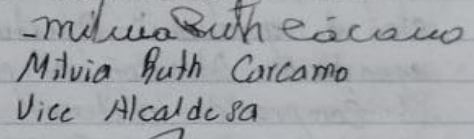 -Milvia Ruth Cárcamo
Milvia Ruth Carcamo
Vice Alcaldesa